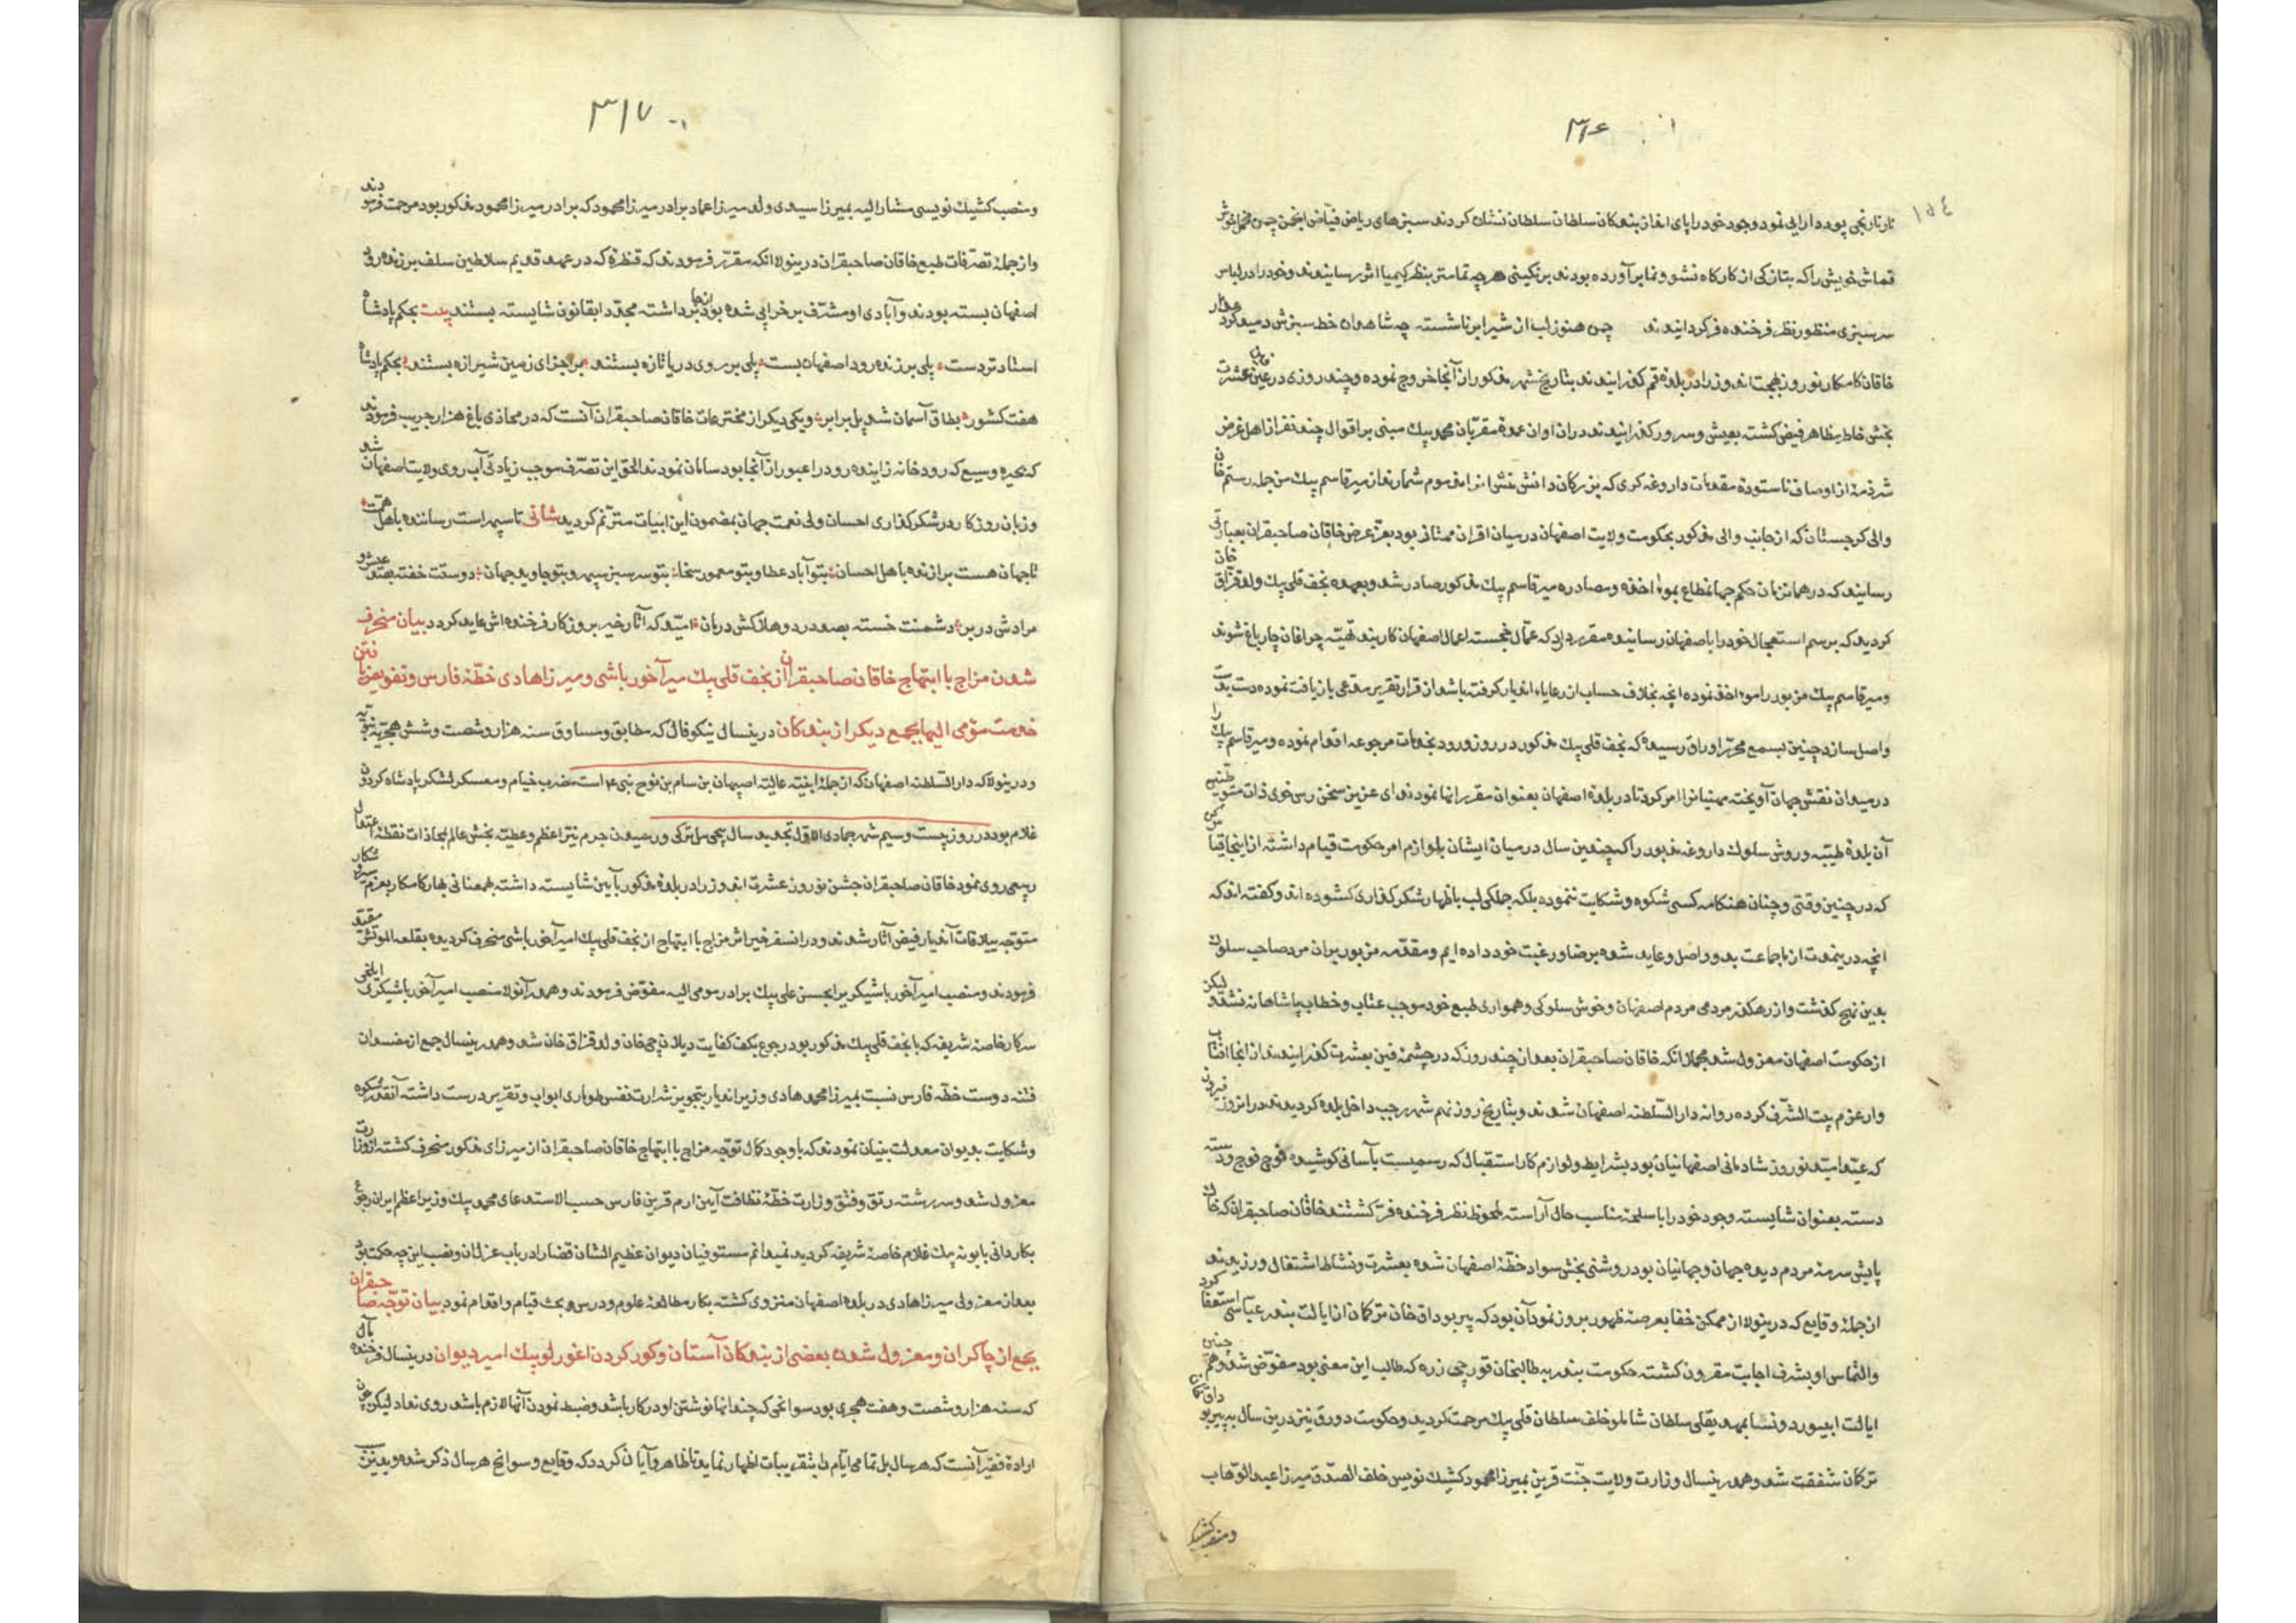 ۳۱۶
۱۵۴
تار نارنجی پود دارایی نمود وجود خود را پای انداز بندکان سلطان سلطان نشان کردند سبزهای ریاض فیاض انجمن چمن
قماش خویش را که بتازکی از کارکاه نشو و نما برآورده بودند برنکینی هرچه تمامتر بنظر کیمیا اثر رسانیدند و خود را در لباس
سرسبزی منظور نظر فرخنده فر کردانیدند چمن هنوز لب از شیر ابر ناشسته چه شاهدان خط سبزش دمید کرد عذار
خاقان کامکار نوروز بهجت اندوز را در بلده قم کذرانیدند بتاریخ شهر مذکور از آنجا خروج نموده و چند روزی در عین عشرت
بخش خاطر مظاهر فیض کشته بعیش و سرور کذرانیدند در ان اوان عمدة مقربان محمد بیک مبنی بر اقوال چند نفر از اهل غرض
شرذمهٔ از اوصاف ناستوده مقدمات داروغه کری که بزرکان دانش منش انرا مذموم شمارند از میر قاسم بیک من جمله رستم خان
والی کرجستان که از جانب والی مذکور بحکومت ولایت اصفهان در میان اقران ممتاز بود بعزّ عرض خاقان صاحبقران بعبارتی
رسانید که در همانزمان حکم جهانمطاع بمواخذه و مصادره میر قاسم بیک مذکور صادر شد و بعهده نجف قلی بیک ولد قزاق خان
کردید که برسم استعجال خود را باصفهان رسانیده مقرر دارد که عمّال خجسته اعمال اصفهان کاربند تهیّه چراغان چارباغ شوند
و میر قاسم بیک مزبور را مواخذ نموده انچه بخلاف حساب از رعایاء اندیار کرفته باشد از قرار تقریر مدعی بازیافت نموده دست بدست
واصل سازد چنین بسمع محرّر اوراق رسیده که نجف قلی بیک مذکور در روز ورود بخدمات مرجوعه اقدام نموده و میر قاسم بیک را
در میدان نقش جهان آویخته منهیانرا امر کرد تا در بلده اصفهان بعنوان مقرر انها نمودند ای عزیز سخن رس خوی ذات متوطنین
آن بلدهٔ طیّبه و روش سلوک داروغه مذبور را که چندین سال در میان ایشان بلوازم امر حکومت قیام داشته از اینجا قیاس کن
که در چنین وقتی و چنان هنکامه کسی شکوه و شکایت ننموده بلکه جملکی لب باظهار شکرکذاری کشوده اند و کفته اند که
انچه درینمدت از ما جماعت بدو واصل و عاید شده برضا و رغبت خود داده ایم و مقدّمه مزبور بران مرد صاحب سلوک
بدین نهج کذشت و از رهکذر مردمی مردم اصفهان و خوش سلوکی و همواری طبع خود موجب عتاب و خطاب پاشاهانه نشد لیکن
از حکومت اصفهان معزول شد مجملا انکه خاقان صاحبقران بعد از چند روز که در چشمهٔ فین بعشرت کذرانیدند از انجا افتاب
وار عزم بیت الشّرف کرده روانه دار السّلطنه اصفهان شدند و بتاریخ روز نهم شهر رجب داخل بلده کردیدند در انروز فیروز
که عید امید نوروز شادمانی اصفهانیان بود بشرایط و لوازم کار استقبال که رسمیست باسانی کوشیده فوج فوج و دسته
دسته بعنوان شایسته وجود خود را با سلحهٔ مناسب حال آراسته ملحوظ نظر فرخنده فر کشتند خاقان صاحبقران که خاک
پایش سرمهٔ مردم دیده جهان و جهانیان بود روشنی بخش سواد خطّهٔ اصفهان شده بعشرت و نشاط اشتغال ورزیدند
از جملهٔ وقایع که درینولا از ممکن خفا بعرصهٔ ظهور بروز نمود آن بود که پیر بوداق خان ترکمان از ایالت بندر عباسی استعفا کرد
والتماس او بشرف اجابت مقرون کشته حکومت بندر به طالبخان قورچی زره که طالب این معنی بود مفوّض شد و همچنین
ایالت ابیورد و نسا بمهدیقلی سلطان شاملو خلف سلطان قلی بیک مرحمت کردید و حکومت دورق نیز درین سال به پیر بوداق خان
ترکمان شفقت شد و همدرینسال وزارت ولایت جنّت قرین بمیرزا محمود کشیک نویس خلف الصدق میرزا عبد الوهاب
و منصب کشیک
۳۱۷
و منصب کشیک نویسی مشار الیه بمیرزا سیدی ولد میرزا عماد برادر میرزا محمود که برادر میرزا محمود مذکور بود مرحمت فرمودند
و از جملهٔ تصرّفات طبع خاقان صاحبقران درینولا انکه مقرّر فرمودند که قنطرهٔ که در عهد قدیم سلاطین سلف بر زنده رود
اصفهان بسته بودند و آبادی او مشرف بر خرابی شده بود از انجا برداشته مجددا بقانون شایسته بستند بیت بحکم پادشاه
استاد تردست پلی بر زنده رود اصفهان بست پلی بر روی دریا تازه بستند بر اجزای زمین شیرازه بستند بحکم پادشاه
هفت کشور بطاق آسمان شد پل برابر و یکی دیکر از مخترعات خاقان صاحبقران آنست که در محاذی باغ هزار جریب فرمودند
که بحیره وسیع که رودخانه زاینده رود را عبور از آنجا بود سامان نمودند الحق این تصرّف موجب زیادتی آب روی ولایت اصفهان شد
و زبان روزکار در شکرکذاری احسان ولی نعمت جهان بمضمون این ابیات مترنّم کردید شانی تا سپهر است رساننده باهل همت
تا جهان هست برازنده باهل احسان بتو آباد عطا و بتو معمور سخا بتو سرسبز سپهر و بتو جاوید جهان دوستت خفته
مرادش در بر دشمنت خسته بصد درد و هلاکش درمان امید که آثار خیر بروزکار فرخنده اش عاید کردد بیان منحرف
شدن مزاج با ابتهاج خاقان صاحبقران از نجف قلی بیک میر آخور باشی و میرزا هادی خطّهٔ فارس و تفویض یافتن
خدمت مؤمی الیها بجمع دیکر از بندکان درینسال نیکو فال که مطابق و مساوق سنه هزار و شصت و شش هجریّه نبویّه
و درینولا که دار السّلطنه اصفهان که از جملهٔ ابنیّه عالیّه اصبهان بن سام بن نوح نبی ع م است مضرب خیام و معسکر لشکر پادشاه کردون
غلام بود در روز بیست و سیم شهر جمادی الاول تجدید سال پیچی ئیل ترکی و رسیدن جرم نیّر اعظم و عطیّه بخش عالم بمحاذات نقطهٔ اعتدال
ربیعی روی نمود خاقان صاحبقران جشن نوروز عشرت اندوز را در بلده مذکور بآیین شایسته داشته بهمعنانی بهار کامکار بعزم سیر و شکار
متوجّه ییلاقات آندیار فیض آثار شدند و در انسفر خیر اثر مزاج با ابتهاج از نجف قلی بیک امیر آخور باشی منحرف کردیده بقلعه الموتش مقیّد
فرمودند و منصب امیر آخور باشیکری بر ابحسن علی بیک برادر مومی الیه مفوّض فرمودند و همدر آنولا منصب امیر آخور باشیکری ایلخی
سرکار خاصهٔ شریفه که با نجف قلی بیک مذکور بود رجوع بکف کفایت دیلانچی خان ولد قزاق خان شد و همدرینسال جمع از مفسدان
فتنه دوست خطّه فارس نسبت بمیرزا محمد هادی وزیر اندیار بتجویز شرارت نفس طوماری ابواب و تقریر درست داشته آنقدر شکوه
و شکایت بدیوان معدلت بنیان نمودند که باوجود کمال توجّه مزاج با ابتهاج خاقان صاحبقران از میرزای مذکور منحرف کشته از وزارت
معزول شد و سررشته رتق و فتق وزارت خطّهٔ نظافت آیین ارم قرین فارس حسب الاستدعای محمد بیک وزیر اعظم ایران رجوع
بکاردانی بابونه بیک غلام خاصهٔ شریفه کردید نمیدانم مستوفیان دیوان عظیم الشان قضا را در باب عزل ان و نصب این چه حکمت بود
بعد از معزولی میرزا هادی در بلده اصفهان منزوی کشته بکار مطالعهٔ علوم و درس و بحث قیام و اقدام نمود بیان توجّه صاحبقران
بجمع از چاکران و معزول شدن بعضی از بندکان آستان و کور کردن اغورلو بیک امیر دیوان درینسال فرخنده مآل
که سنه هزار و شصت و هفت هجری بود سوانحی که چندانها نوشتن او در کار باشد و ضبط نمودن آنها لازم باشد روی نداد لیکن چون
ارادهٔ فقیر آنست که هر سال بل تمامی ایّام را بتقریبات اظهار نماید تا ظاهر و آیان کردد که وقایع و سوانح هر سال ذکر شده و بدین